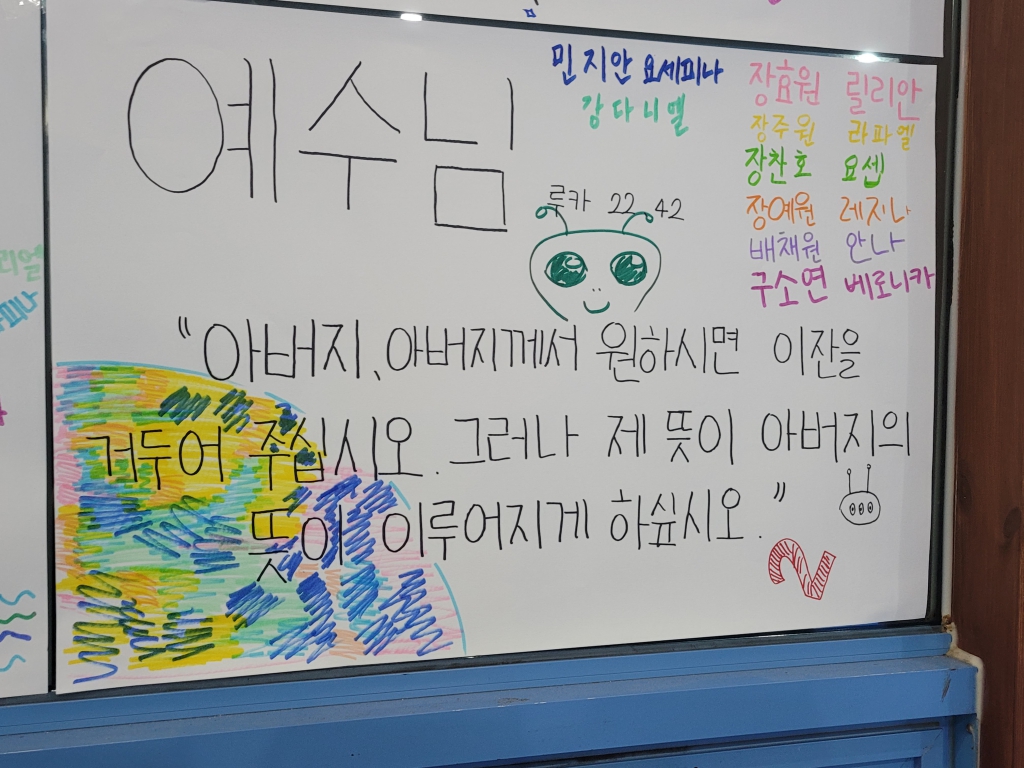 예수님
민지안 요세피나
강다니엘
장효원 릴리안
장주원 라파엘
장찬호 요셉
장예원 레지나
배채원 안나
구소연 베로니카
루카 22 42
"아버지, 아버지께서 원하시면 이잔을
거두어 주십시오. 그러나 제 뜻이 아버지의
뜻이 이루어지게 하싶시오."
리엘
피나